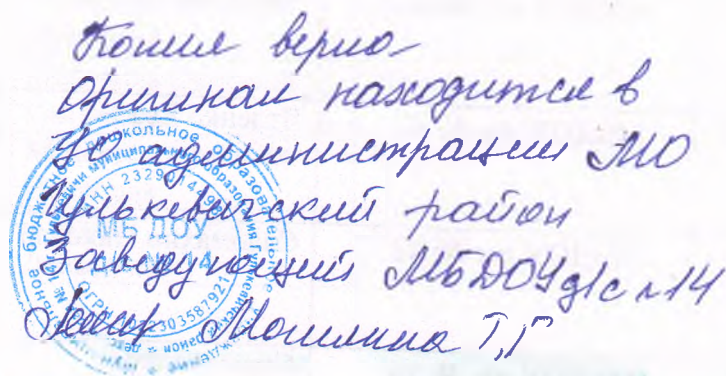 Копия верна
Оригинал находится в
УО администрации МО
Гулькевичский район
Заведующий МБДОУ д/с №14
Т.Г
МБ ДОУ